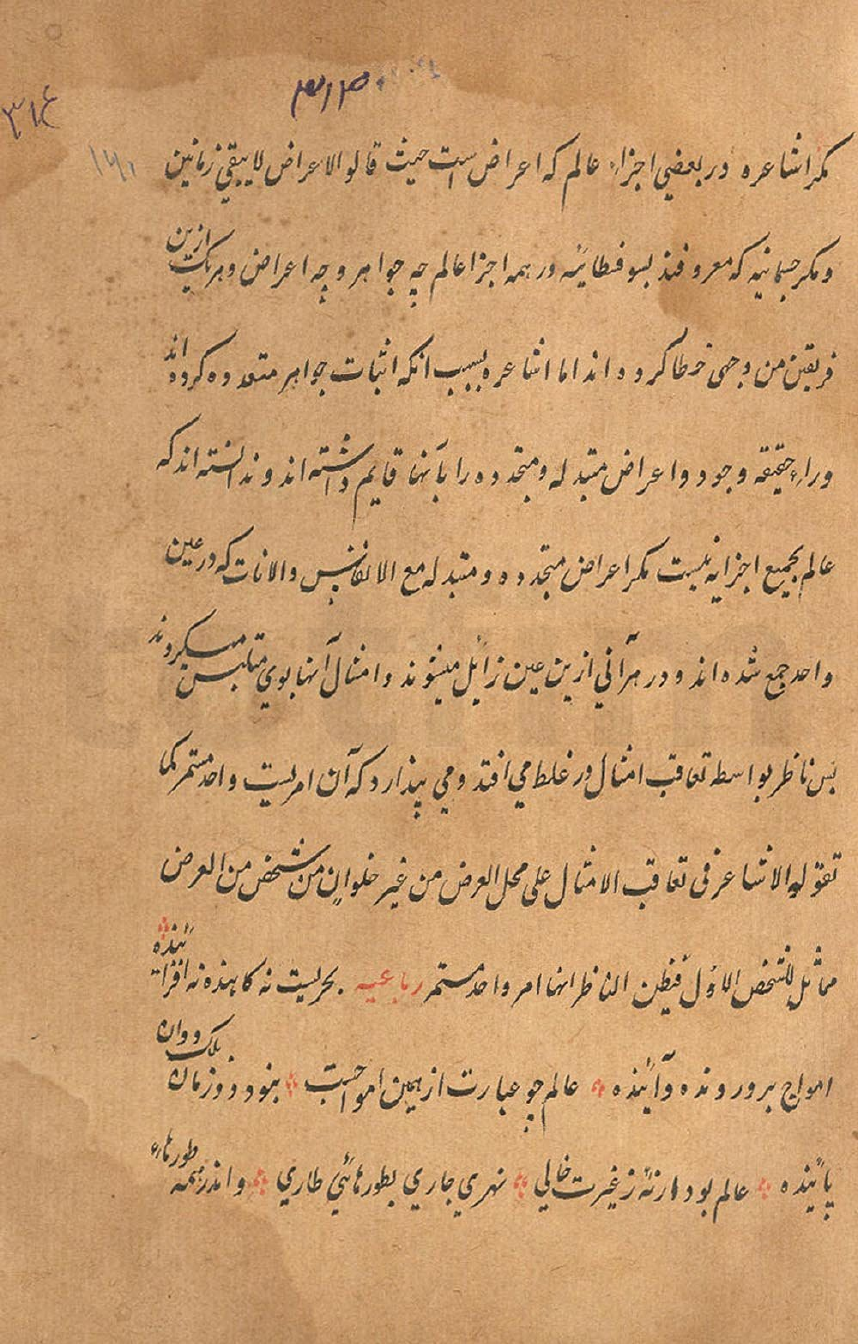 ۳۱۳
۳۱۶
۱۶۱
مکر اشاعره در بعضی اجزاء عالم که اعراض است حیث قالوا الاعراض لا یبقی زمانین
و مکر حسبانیه که معروفند بسوفطائیه در همه اجزا عالم چه جواهر و چه اعراض و هر یک ازین
فریقین من وجهی خطا کرده اند اما اشاعره بسبب انکه اثبات جواهر متعدده کرده اند
وراء حقیقه وجود و اعراض متبدله و متجدده را بآنها قایم داشته اند و ندانسته اند که
عالم بجمیع اجزایه نیست مکر اعراض متجدده و متبدله مع الانفاس و الانات که در عین
واحد جمع شده اند و در هر آنی ازین عین زائل میشوند و امثال آنها بوی متلبس میکردند
پس ناظر بواسطه تعاقب امثال در غلط می افتد و می پندارد که آن امریست واحد مستمر کما
تقوله الاشاعر فی تعاقب الامثال علی محل العرض من غیر خلو ان من شخص من العرض
مماثل للشخص الاول فیظن الناظر انها امر واحد مستمر رباعیه بحریست نه کاهنده نه افزائنده
امواج برو رونده و آئینده عالم چو عبارت از همین امواجست بنود دو زمان بلک دو ان
پائینده عالم بود ار نهٔ ز غیرت خالی نهری جاری بطورهائی طاری و اندر همه طورهاء